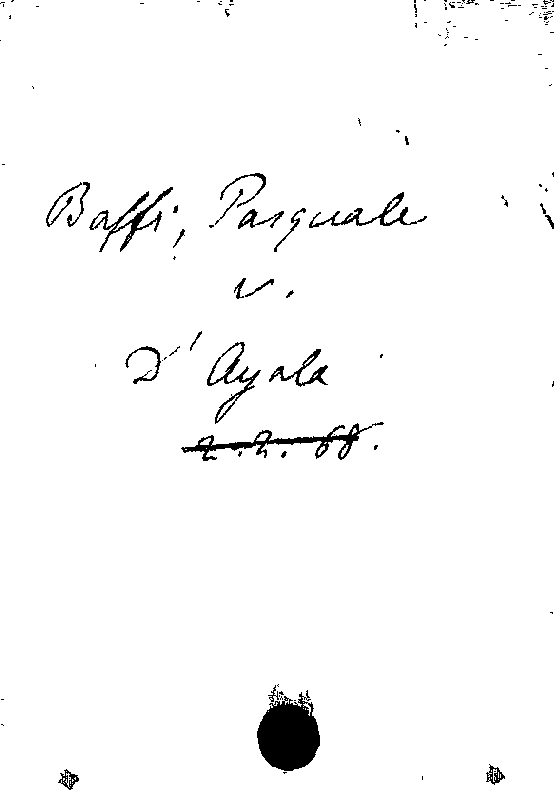 Baffi, Pasquale
v.
D'Ayala
2.2.68.